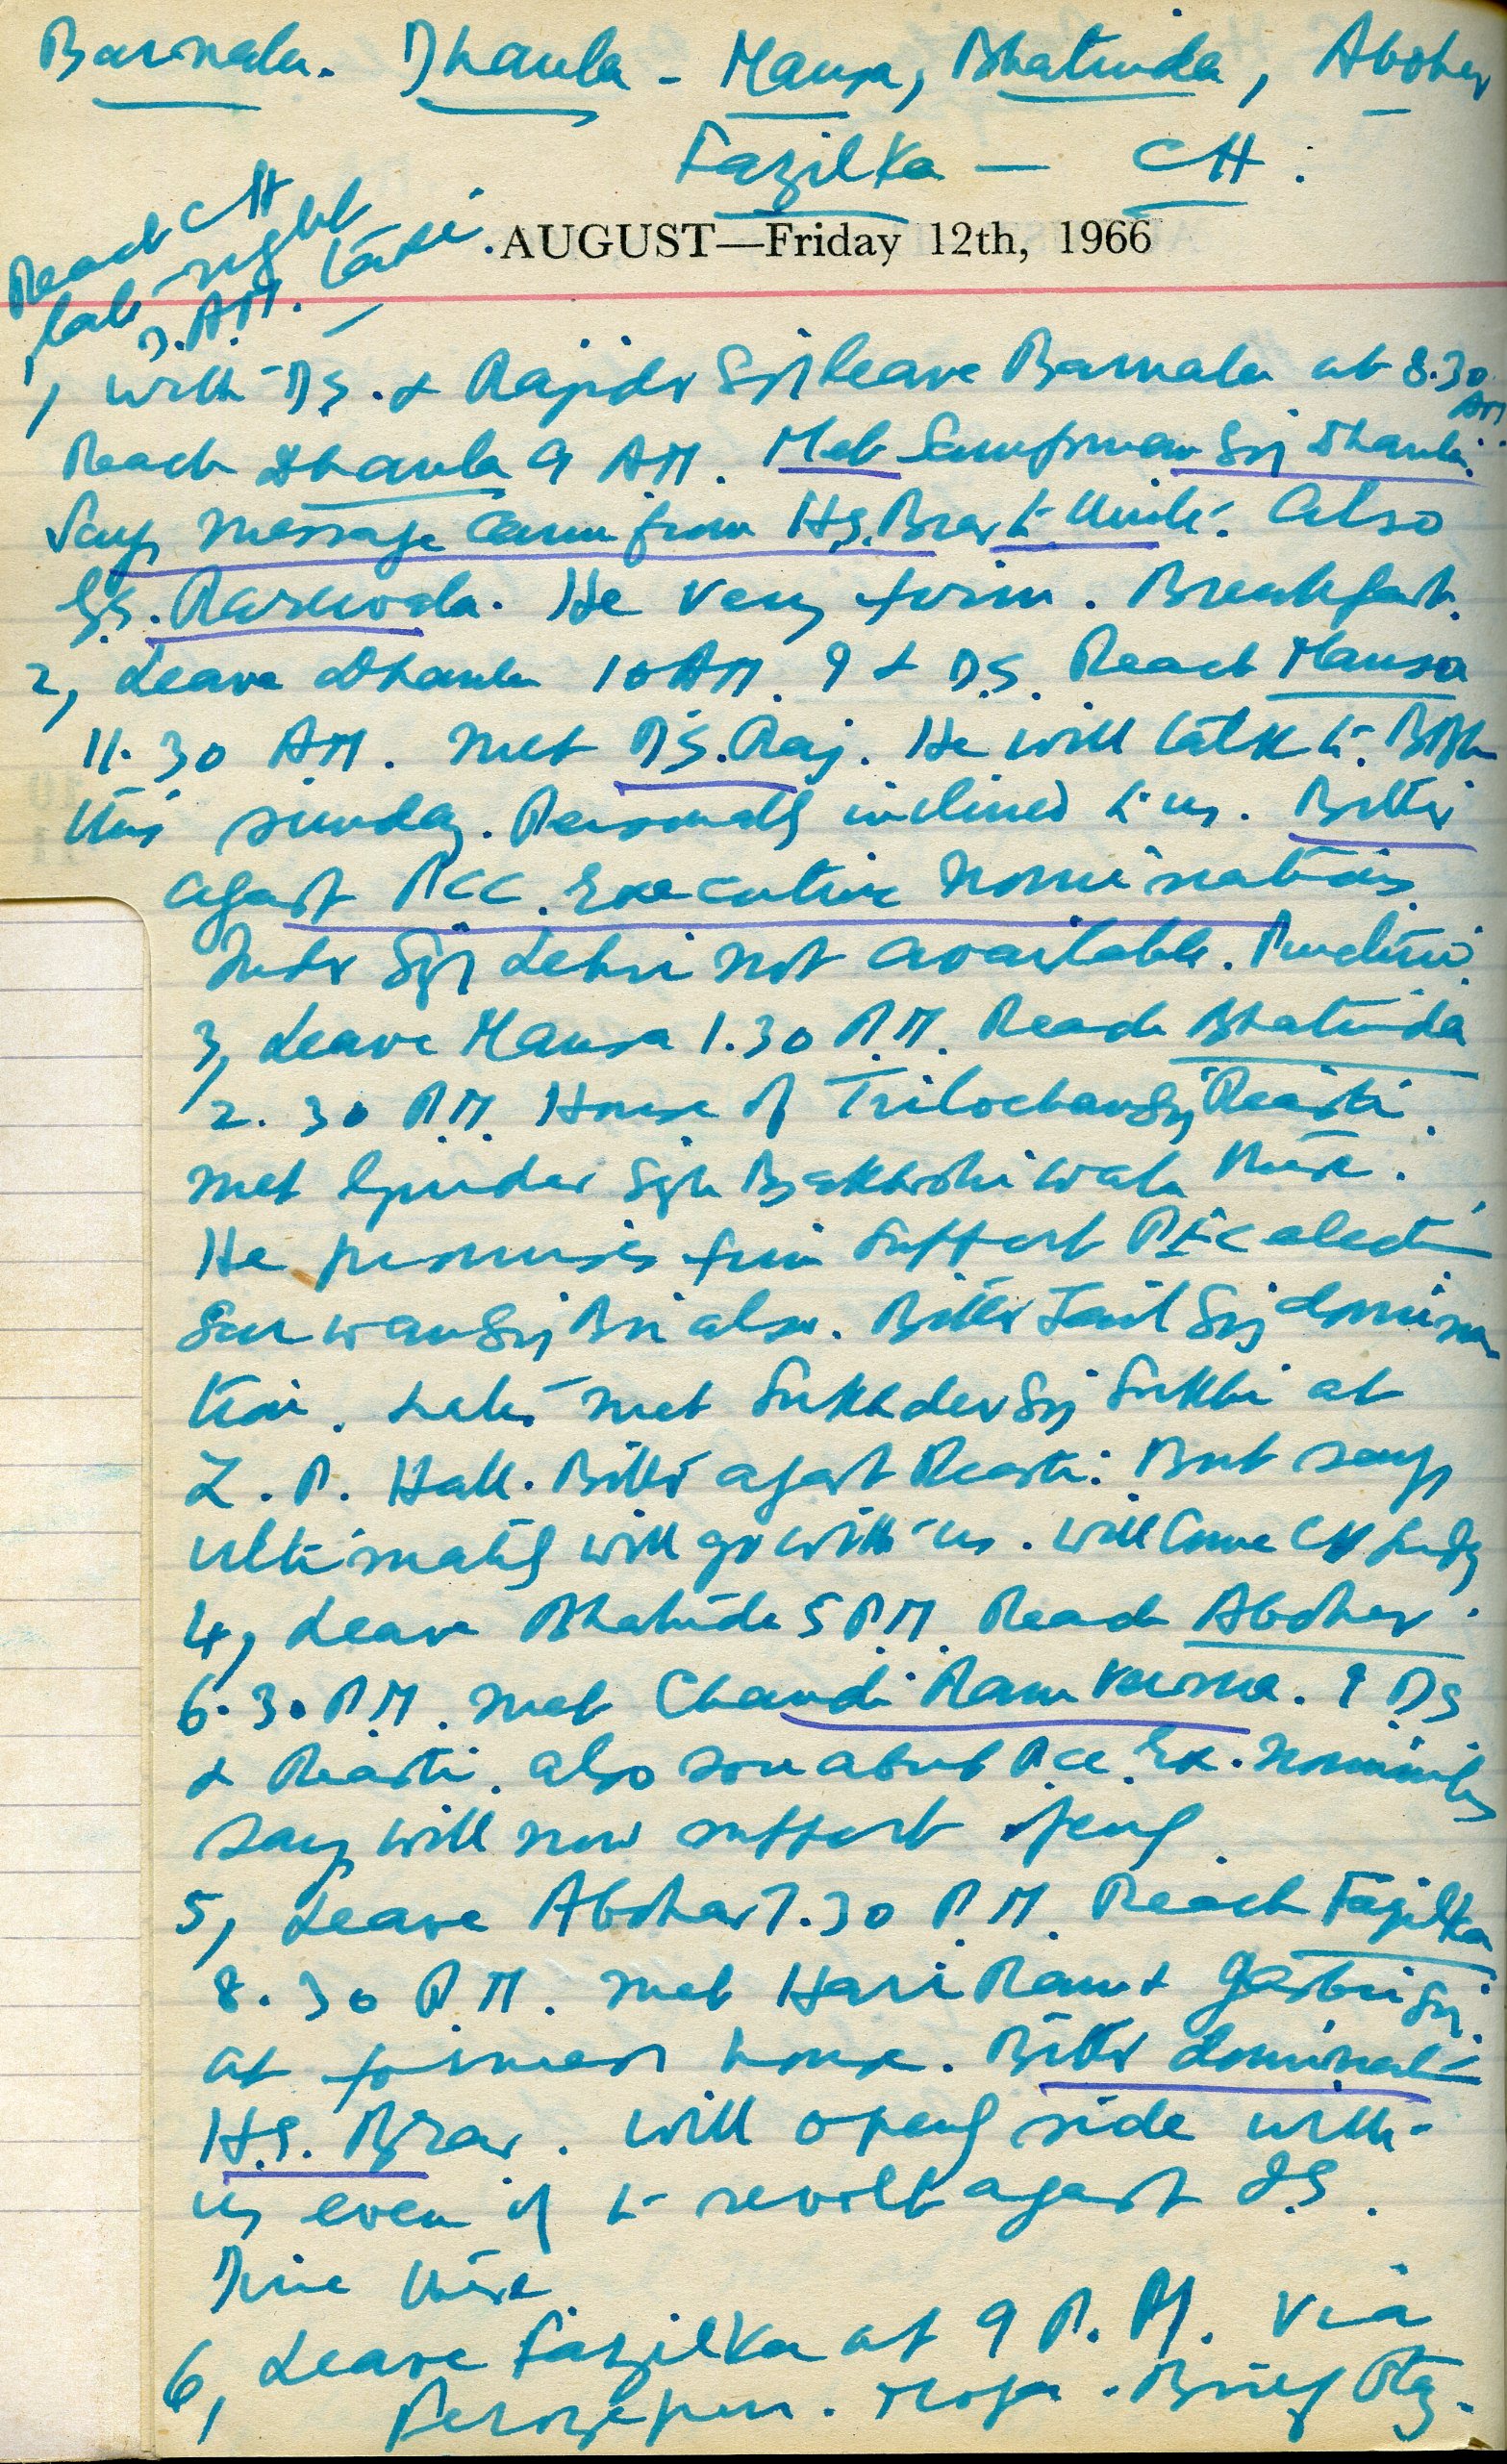 Barnala. Dhaula - Mansa, Bhatinda, Abohar
Fazilka — CH.
Reach CH
late night
3. AM. taxi.
AUGUST—Friday 12th, 1966
1, with DS. & Rajidr Sgh leave Barnala at 8.30 AM
Reach Dhaula 9 AM. Met Sampuran Sgh Dhaula.
Says message came from HS. Brar to Unite. Also
GS. He very firm. Breakfast.
2, Leave Dhaula 10 AM. I & DS. Reach Mansa
11.30 AM. met DS. Raj. He will talk to
this sunday. Personally inclined to us. Bitter
agast PCC. Executive nominations
Indr Sgh not available.
3, Leave Mansa 1.30 P.M. Reach Bhatinda
2.30 P.M. House of Trilochan Sgh Reasti.
met Sgh there.
He promises firm support elect
Sarwan Sgh also. Bitter Sgh domina
tion. Later met Sukhdev Sgh Sukhi at
Z. P. Hall. Bitter agast Reasti. But says
ultimately will go with us. will come CH
4, Leave Bhatinda 5 P.M. Reach Abohar.
6.30 P.M. met Chandi Ram Verma. I DS
& Reasti. also sore about PCC. Ex.
Says will now support openly
5, Leave Abohar 7.30 P.M. Reach Fazilka
8.30 P.M. met Hari Ram & Sgh.
at formers house. Bitter
HS. Brar. will openly side with
us even if to revolt agast JS.
Dine there.
6, Leave Fazilka at 9 P.M. via
Ferozepur. Moga.